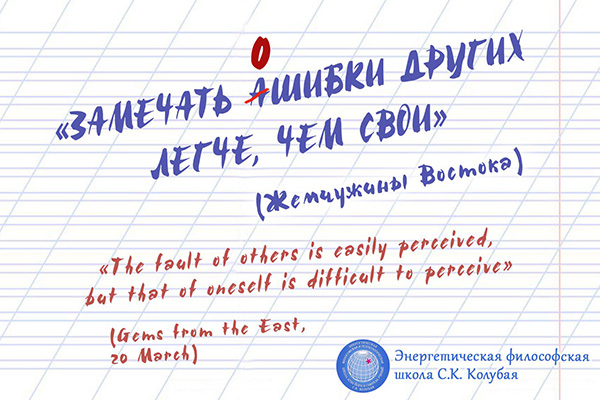 О
«ЗАМЕЧАТЬ АШИБКИ ДРУГИХ
ЛЕГЧЕ, ЧЕМ СВОИ»
(Жемчужины Востока)
«The fault of others is easily perceived,
but that of oneself is difficult to perceive»
(Gems from the East,
20 March)
Энергетическая философская
школа С.К. Колубая